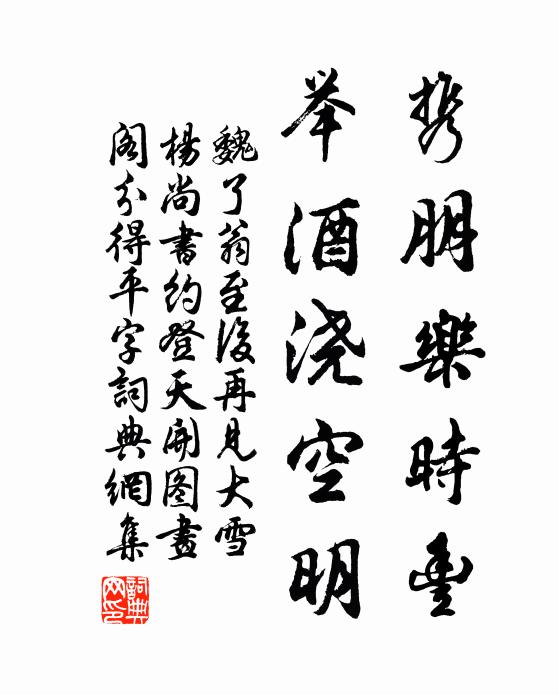 携朋樂時豐
举酒浇空明
魏了翁至後再見大雪
楊尚書約登天開图畫
阁分得平字詞典網集
詞典网印